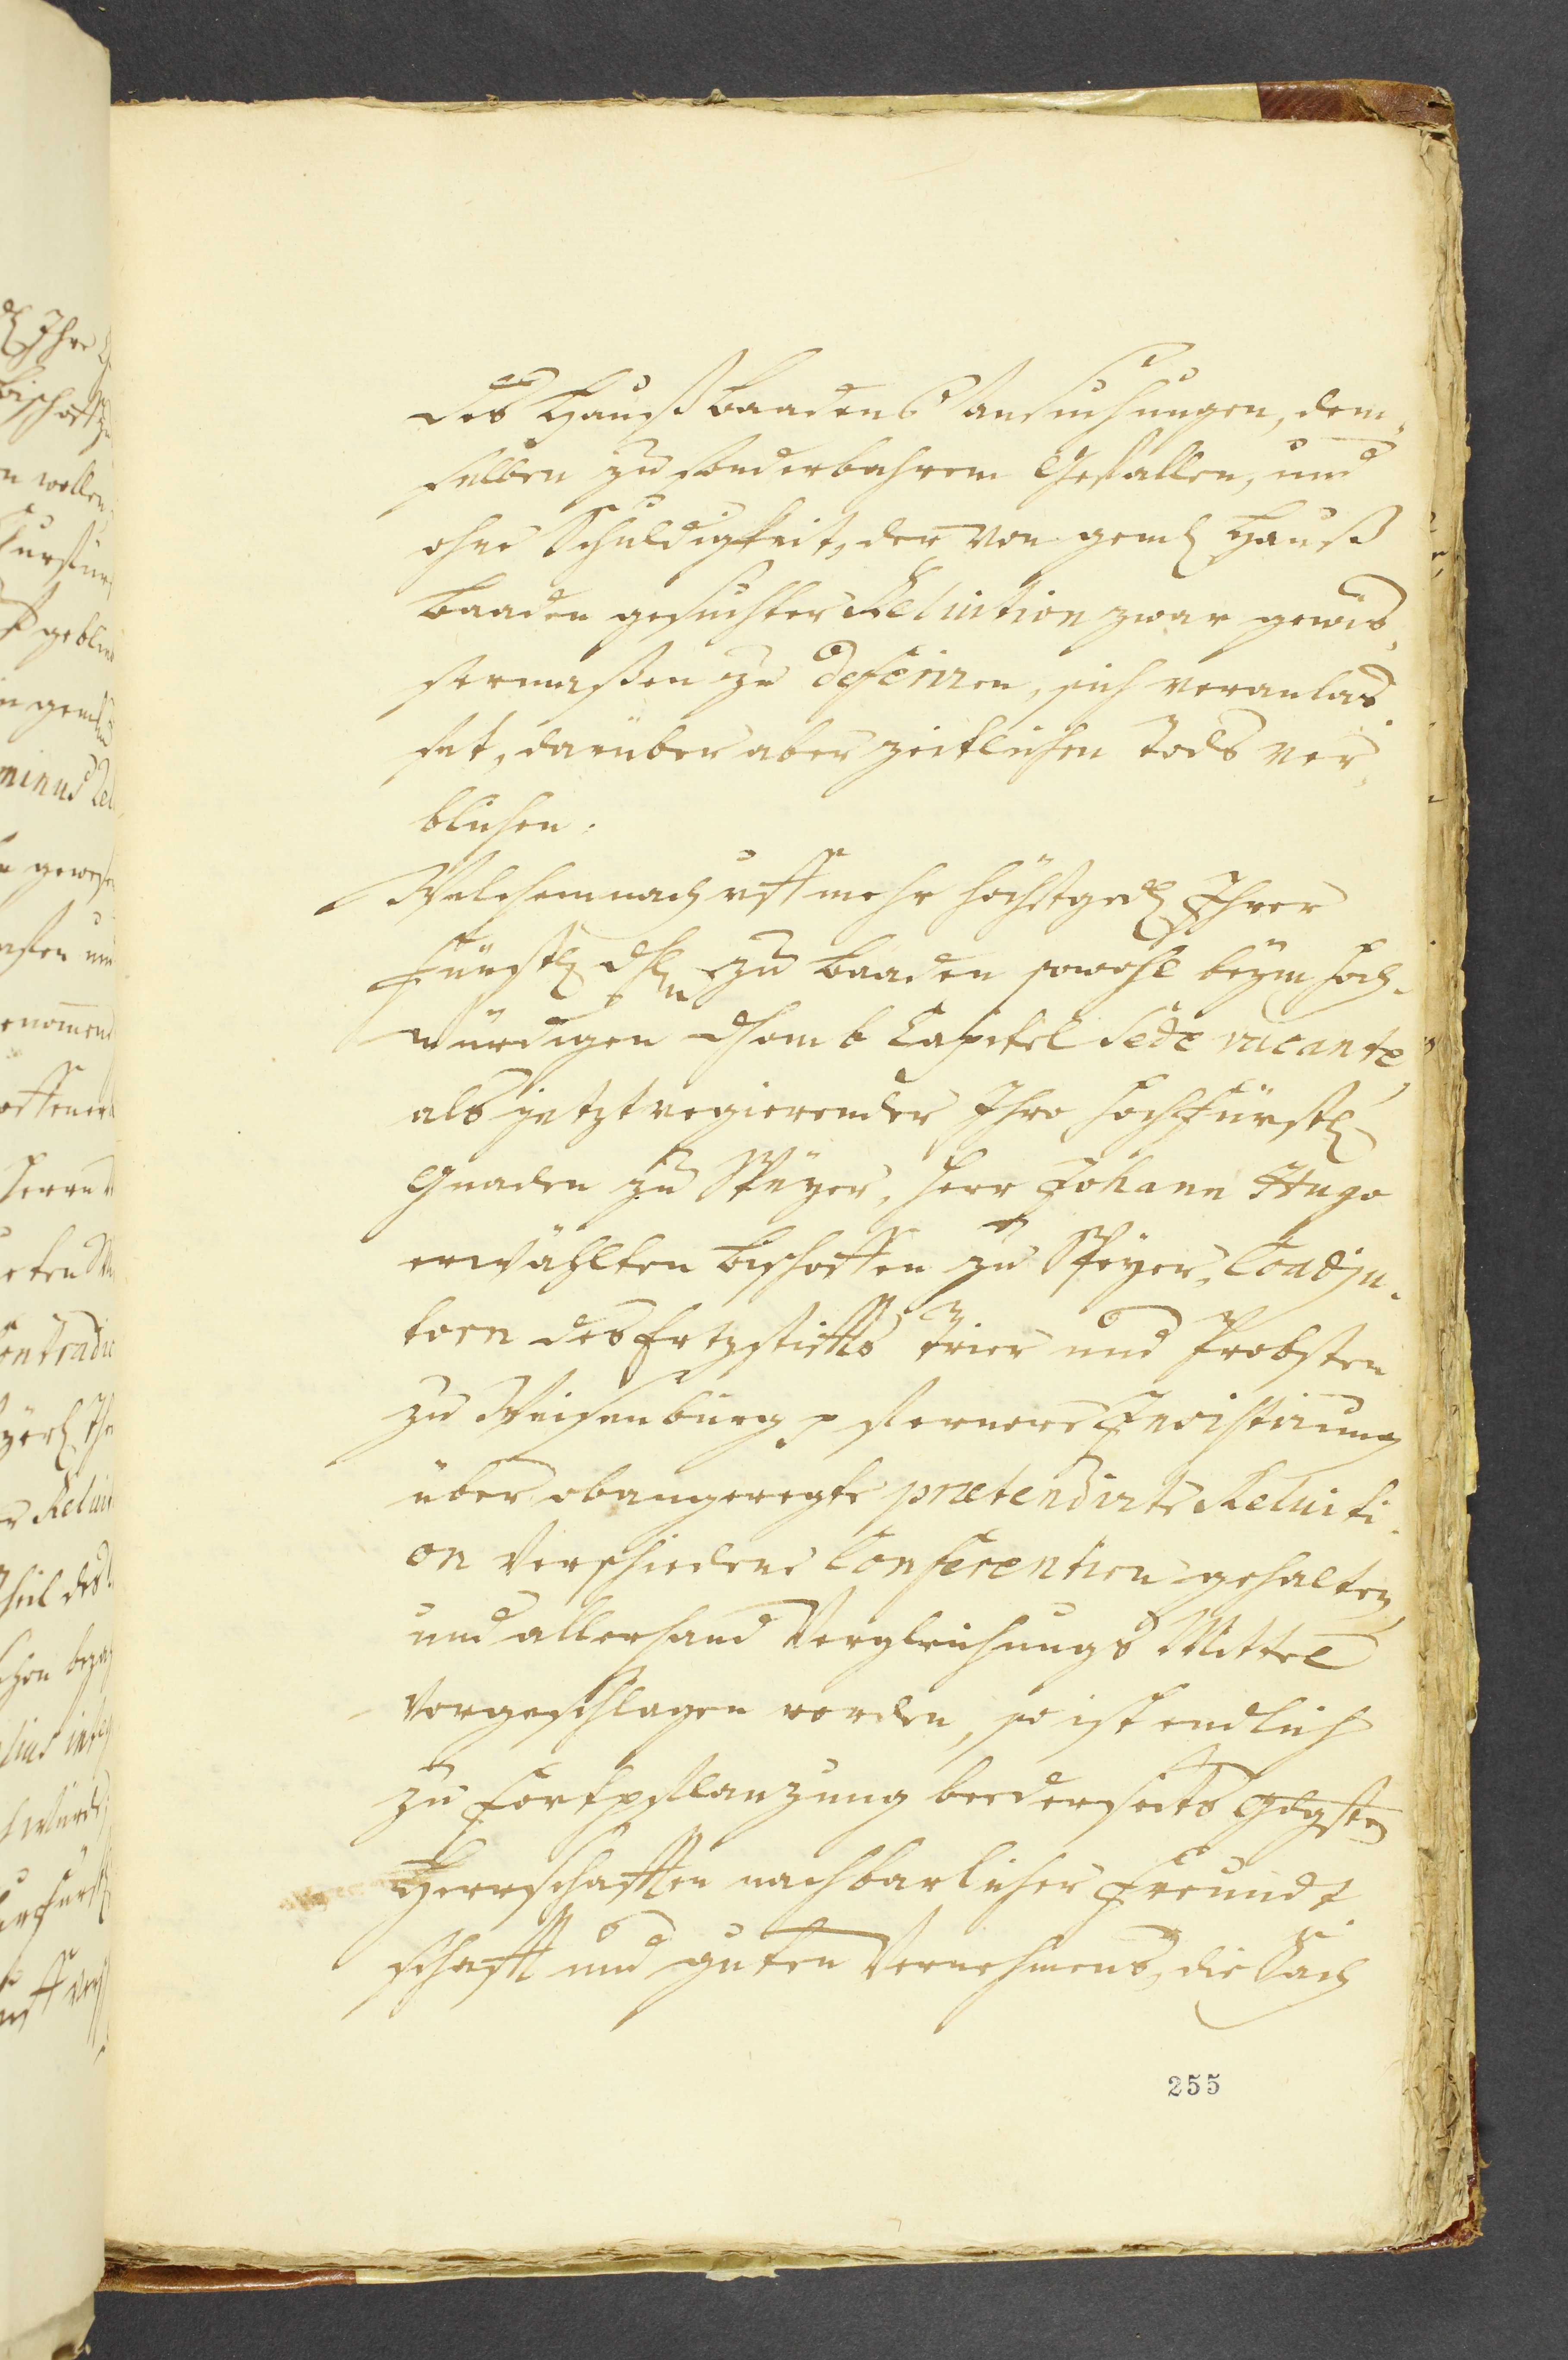 des Hauß Baadens Ansuchungen, dem„
selben zu sonderbahrem Gefallen, und
ohne Schuldigkeit, der von gemelt Hauß
Baaden gesuchter Reluition zwar gewis„
sermassen zu deferiren, sich veranlas„
set, darüber aber zeitlichen Tods ver„
blichen.
Welchemnach uff mehr höchstged Ihrer
Fürstl dhl zu Baaden sowohl beym hoch„
würdigen Dhomb Capitel Sede vacante,
als jetztregierender Ihro hochfürstl
Gnaden zu Speyer, Herr Johann Hugo
erwählten Bischoffen zu Speyer, Coadju„
torn des Ertzstiffts Trier und Probsten
zu Weisenburg p fernere Insistirung
über obangeregte prætendirte Reluiti„
on verschiedene Conferentien gehalten,
und allerhand Vergleichungs Mittel
vorgeschlagen worden, so ist endlich
zu Fortpflanzung beederseits Gdgste
Herrschafften nachbarlicher Freundt„
schafft und guten Vernehmens, die Sach
255